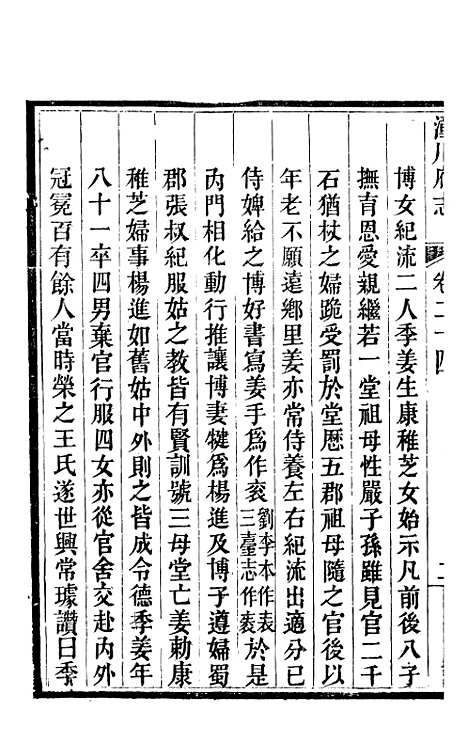 潼川府志 卷二十四 二
博女紀流二人季姜生康稚芝女始示凡前後八子
撫育恩愛親繼若一堂祖母性嚴子孫雖見官二千
石猶杖之婦跪受罰於堂歷五郡祖母隨之官後以
年老不願遠鄉里姜亦常侍養左右紀流出適分已
侍婢給之博好書寫姜手爲作袠劉李本作表三臺志作袠於是
內門相化動行推讓博妻犍爲楊進及博子遵婦蜀
郡張叔紀服姑之教皆有賢訓號三母堂亡姜勅康
稚芝婦事楊進如舊姑中外則之皆成令德季姜年
八十一卒四男棄官行服四女亦從官舍交赴內外
冠冕百有餘人當時榮之王氏遂世興常璩讚曰季